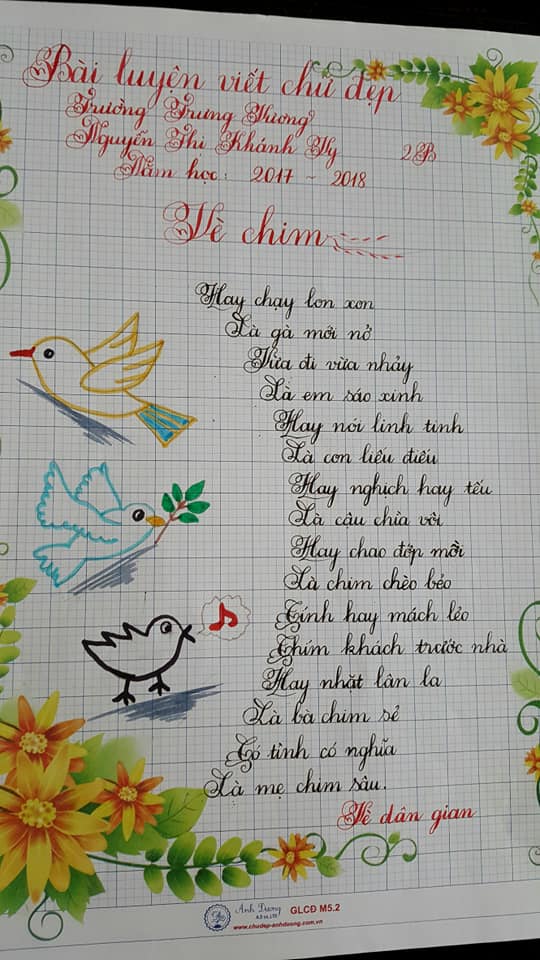 Bài luyện viết chữ đẹp
Trường Trưng Vương
Nguyễn Thị Khánh Vy 2B
Năm học: 2017 - 2018
Vè chim
Hay chạy lon xon
Là gà mới nở
Vừa đi vừa nhảy
Là em sáo xinh
Hay nói linh tinh
Là con liếu điếu
Hay nghịch hay tếu
Là cậu chìa vôi
Hay chao đớp mồi
Là chim chèo bẻo
Tính hay mách lẻo
Thím khách trước nhà
Hay nhặt lân la
Là bà chim sẻ
Có tình có nghĩa
Là mẹ chim sâu.
Vè dân gian
Ánh Dương
GLCĐ M5.2
www.chudep-anhduong.com.vn